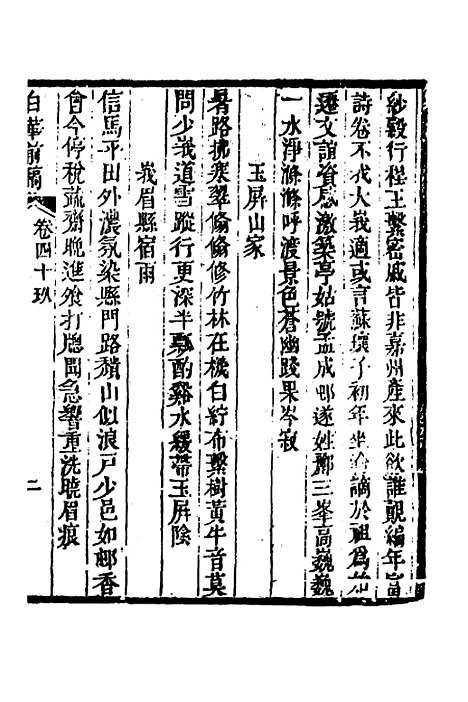 紗縠行程王繫密戚皆非嘉州產來此欲誰覿編年富
詩卷不戒大我適或言蘇壤了初年坐論謫於祖為
遷文誼質感激築亭姑號孟成邨遂姓鄭三峯高巍巍
一水淨滌滌呼渡景色蒼幽踐果岑寂
玉屏山家
暑路拂寒翠翛翛修竹林在機白紵布繫樹黃牛音莫
問少峩道雪蹤行更深半瓢酌谿水緩帶玉屏陰
峩眉縣宿雨
信馬平田外濃氛染縣門路積山似浪戶少邑如邨香
會今停稅蔬齋晚進飧打牕聞急響重洗曉眉痕
白華前稿
卷四十玖
二